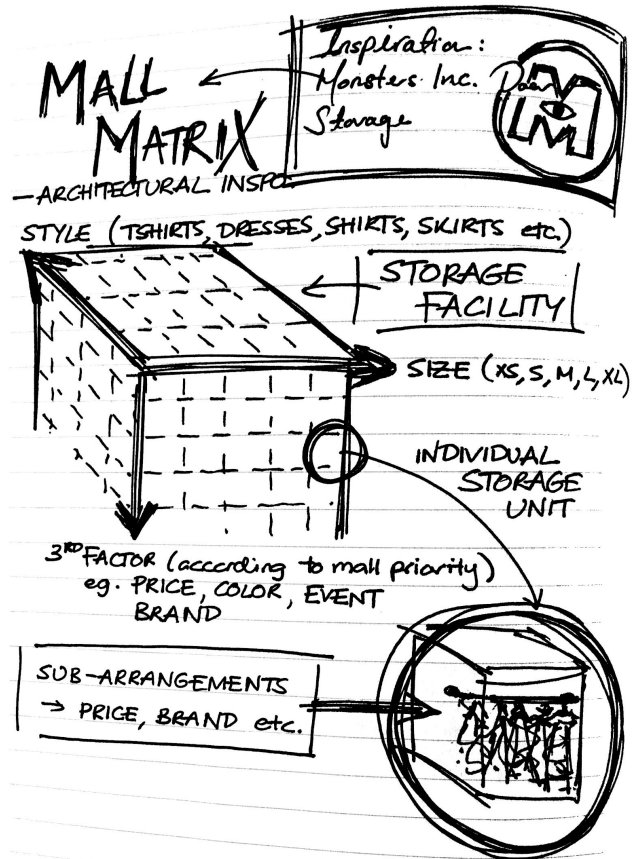 MALL
MATRIX
Inspiration:
Monsters Inc. Door
Storage
M
— ARCHITECTURAL INSPO.
STYLE (TSHIRTS, DRESSES, SHIRTS, SKIRTS etc.)
STORAGE
FACILITY
SIZE (XS, S, M, L, XL)
INDIVIDUAL
STORAGE
UNIT
3RD FACTOR (according to mall priority)
eg. PRICE, COLOR, EVENT
BRAND
SUB-ARRANGEMENTS
→ PRICE, BRAND etc.